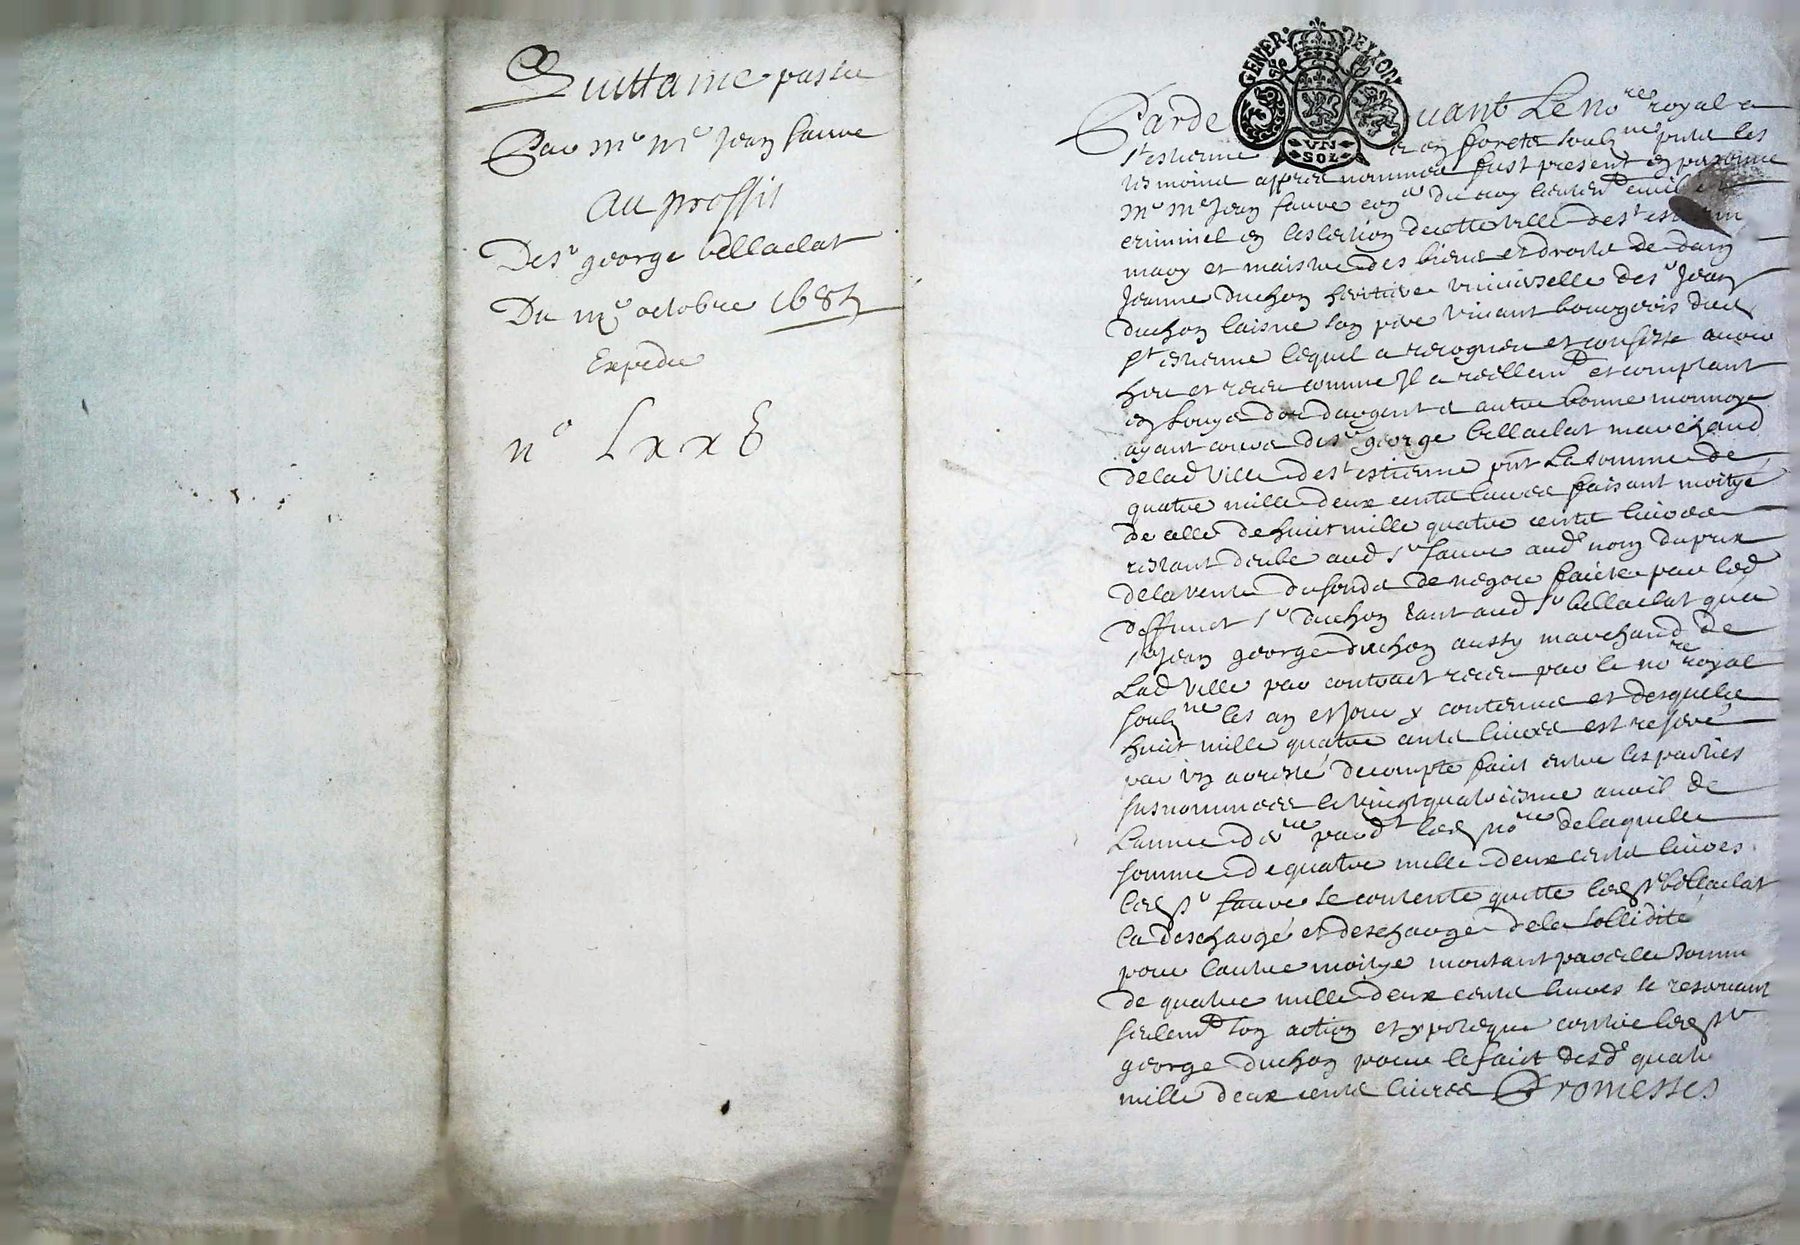 Quittance passée
Par Me Me Jean Sauve
Au proffit
De Sr george bellaclat
Du octobre 168
Expedie
n° Lxx
GENER DE LYON
VN
SOL
Pardeuant Le Nore royal a
St estienne en forets soubne pnt les
tesmoins appres nommes fust present en personne
Me Me Jean Sauve coner du roy lieutent civil et
criminel en leslection de cette ville de St estienne
mary et maistre des biens et droits de dam
Jeanne Duchon heritiere universelle de Sr Jean
Duchon laisne son pere vivant bourgeois dud
St estienne lequel a recogneu et confesse avoir
heu et receu comme Jl a reellemt et comptant
en Louys dor dargent et autre bonne monnoye
ayant cours de Sr george bellaclat marchand
de lad ville de St estienne pnt La somme de
quatre mille deux cents livres faisant moitye
de celle de huict mille quatre cents livres
restant deube aud Sr Sauve aud nom du prix
de la vente du fonds de negoce faicte par led
deffunct Sr Duchon tant aud Sr bellaclat que a
Sr Jean george Duchon aussy marchand de
Lad ville par contract receu par le nore royal
soubne les an et jour y contenus et desquels
huict mille quatre cents livres est reserve
par un arreste de compte faict entre les parties
susnommees le vingt quatriesme avril de
Lannee dre pard led nore de laquelle
somme de quatre mille deux cents livres
led Sr Sauve se contente quitte led Sr bellaclat
la descharge et descharge de la sollidité
pour lautre moitye montant pareille somme
de quatre mille deux cents livres se reservant
seulemt son action et ypoteque contre led Sr
george Duchon pour le faict desd quatre
mille deux cents livres Promesses